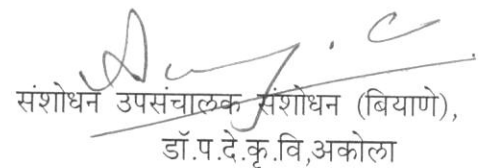 संशोधन उपसंचालक संशोधन (बियाणे),
डॉ.प.दे.कृ.वि,अकोला